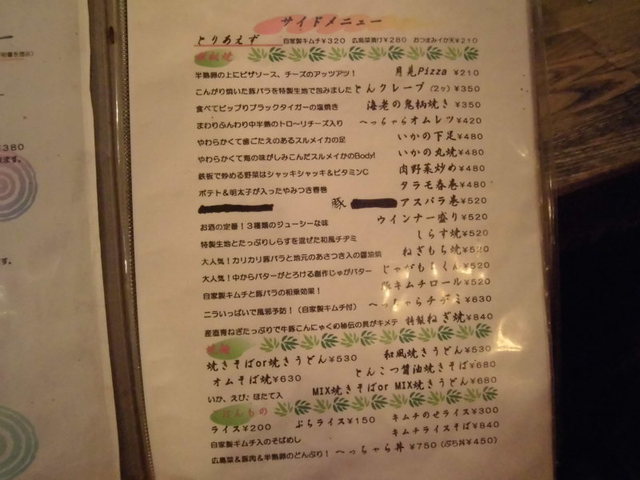 サイドメニュー
とりあえず 自家製キムチ¥320 広島菜漬け¥280 おつまみイカ天¥210
鉄板焼
半熟卵の上にピザソース、チーズのアッツアツ! 月見Pizza ¥210
こんがり焼いた豚バラを特製生地で包みました とんクレープ(2ッ) ¥350
食べてビップリブラックタイガーの塩焼き 海老の鬼柄焼き ¥350
まわりふんわり中半熟のトロ〜リチーズ入り へっちゃらオムレツ ¥420
やわらかくて歯ごたえのあるスルメイカの足 いかの下足 ¥480
やわらかくて海の味がしみこんだスルメイカのBody! いかの丸焼 ¥480
鉄板で炒める野菜はシャッキシャッキ&ビタミンC 肉野菜炒め ¥480
ポテト&明太子が入ったやみつき春巻 タラモ春巻 ¥480
豚 アスパラ巻 ¥520
お酒の定番!3種類のジューシーな味 ウインナー盛り ¥520
特製生地とたっぷりしらすを混ぜた和風チヂミ しらす焼 ¥520
大人気!カリカリ豚バラと地元のあさつき入の醤油焼 ねぎもち焼 ¥520
大人気!中からバターがとろける創作じゃがバター じゃがもちくん ¥520
自家製キムチと豚バラの相乗効果! キムチロール ¥520
ニラいっぱいで風邪予防!(自家製キムチ付) へっちゃらチヂミ ¥630
産直青ねぎたっぷりで牛豚こんにゃくめ秘伝の具がキメテ 特製ねぎ焼 ¥840
焼きそばor焼きうどん ¥530 和風焼きうどん ¥530
オムそば焼 ¥630 とんこつ醤油焼きそば ¥680
いか、えび、ほたて入 MIX焼きそばor MIX焼きうどん ¥680
ごはんもの
ライス ¥200 ぷちライス ¥150 キムチのせライス ¥300
自家製キムチ入のそばめし キムチライスそば ¥840
広島菜&豚肉&半熟卵のどんぶり! へっちゃら丼 ¥750 (ぷち丼 ¥450)
¥380